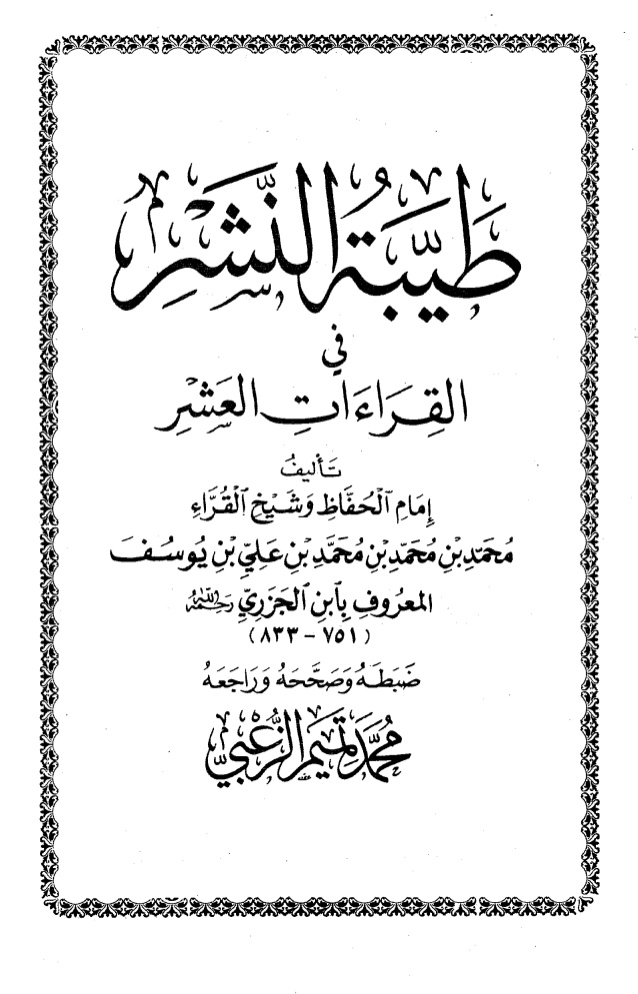 طَيِّبَةُ النَّشْرِ
في
القِرَاءَاتِ العَشْرِ
تَأليفُ
إِمَامِ ٱلْحُفَّاظِ وَشَيْخِ ٱلْقُرَّاءِ
مُحَمَّدِ بْنِ مُحَمَّدِ بْنِ مُحَمَّدِ بْنِ عَلِيِّ بْنِ يُوسُفَ
المَعْرُوفِ بِٱبْنِ ٱلْجَزَرِيِّ رَحِمَهُ اللهُ
(٧٥١ - ٨٣٣)
ضَبَطَهُ وَصَحَّحَهُ وَرَاجَعَهُ
مُحَمَّد تَمِيم الزُّعْبِي